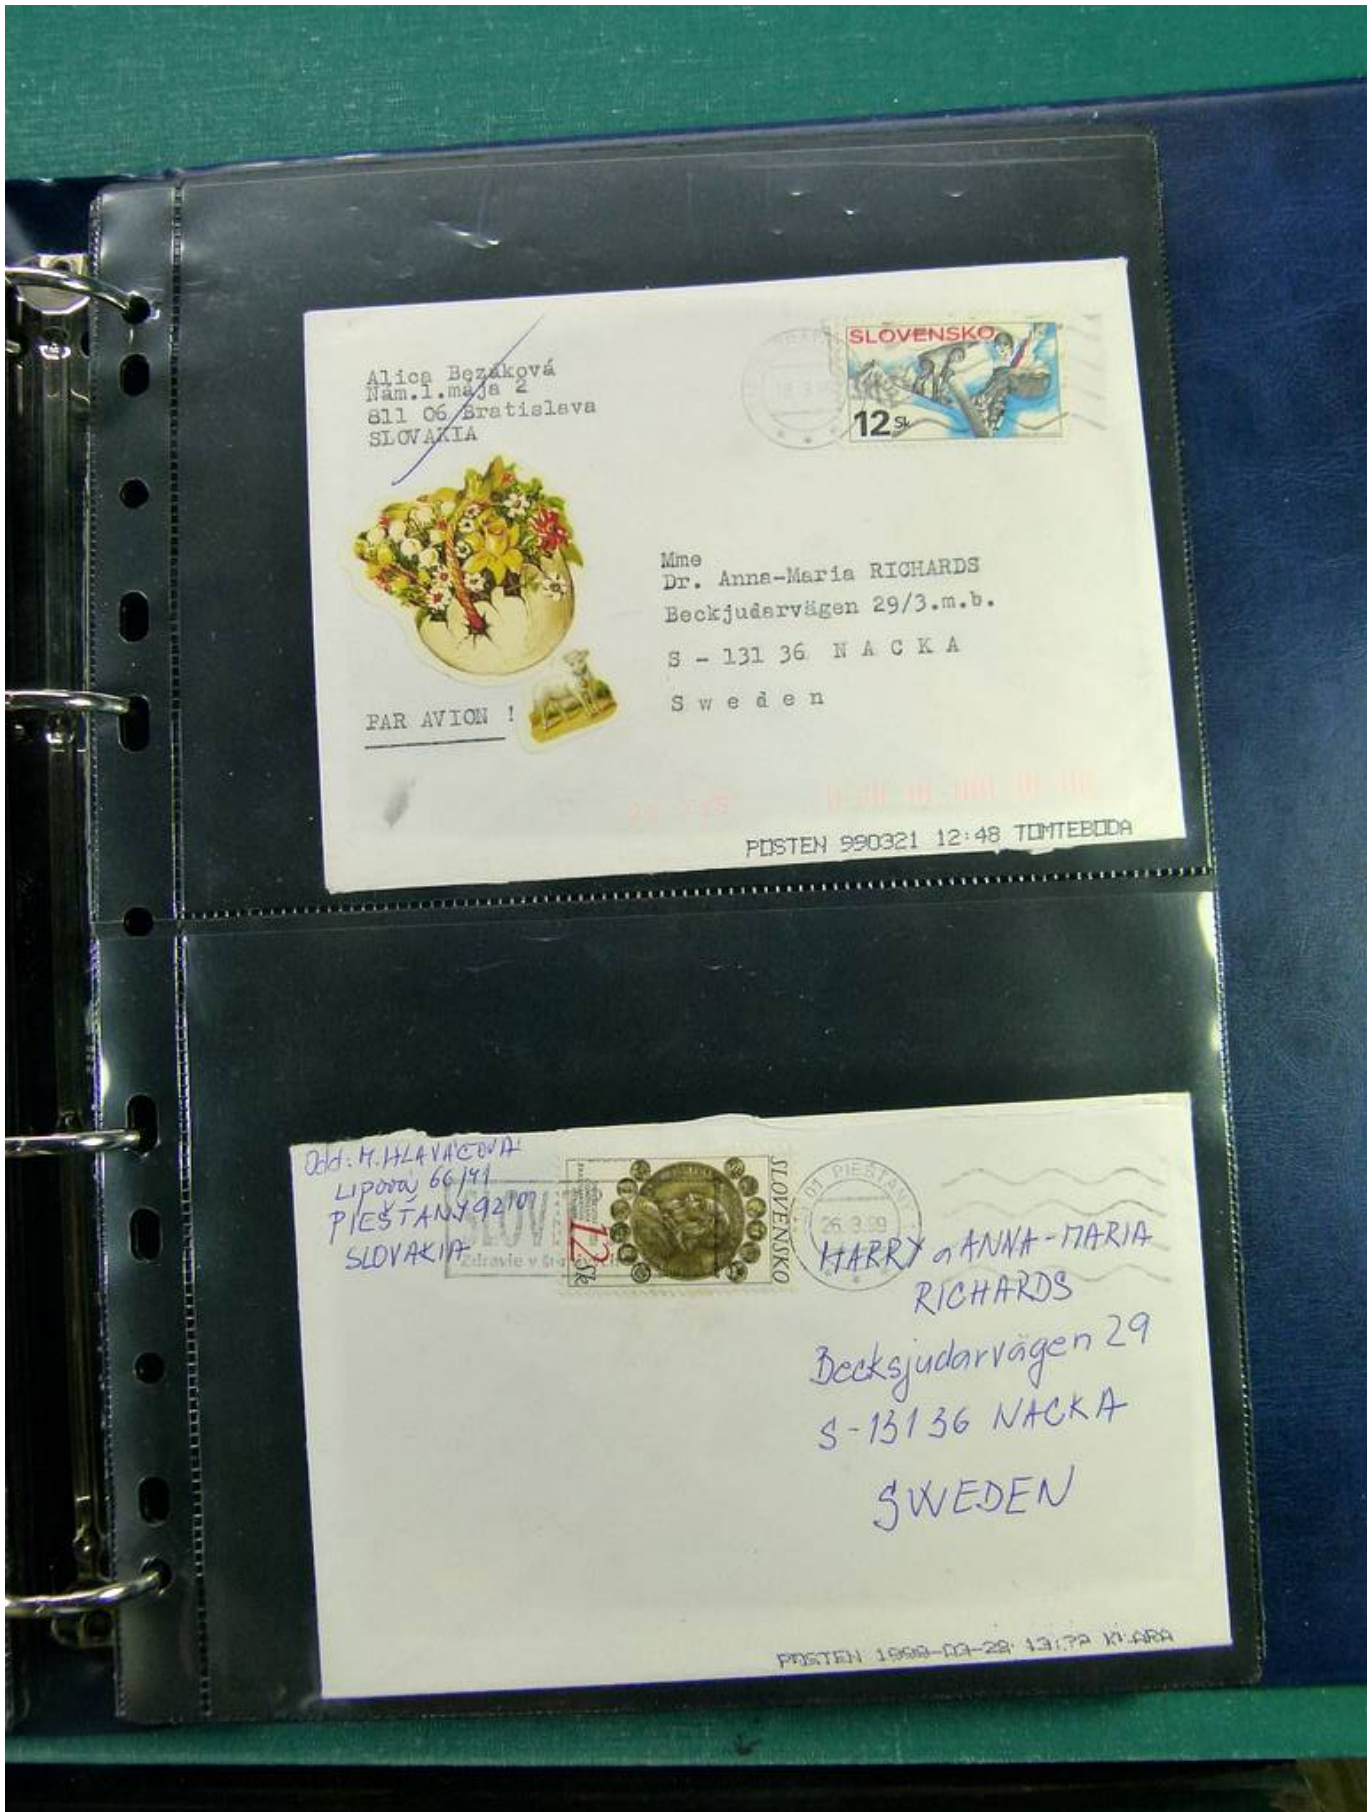 Alica Bezáková
Nám.1.mája 2
811 06 Bratislava
SLOVAKIA
SLOVENSKO
12 Sk
Mme
Dr. Anna-Maria RICHARDS
Beckjudarvägen 29/3.m.b.
S - 131 36 N A C K A
S w e d e n
PAR AVION !
POSTEN 990321 12:48 TOMTEBODA
Odd: M. HLAVÁČOVÁ
Lipová 66/41
PIEŠŤANY 92101
SLOVAKIA
SLOV
Zdravie v
12 Sk
SLOVENSKO
01 PIEŠŤANY
26.3.99
HARRY a ANNA-MARIA
RICHARDS
Becksjudarvägen 29
S-13136 NACKA
SWEDEN
POSTEN 1999-03-28